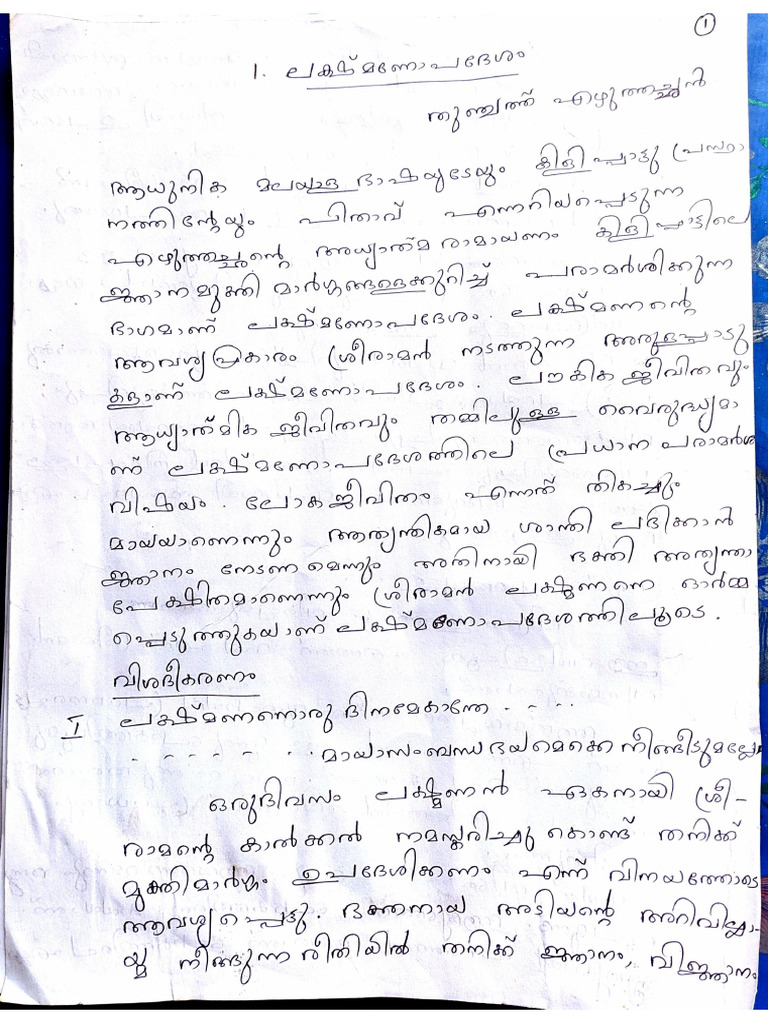 1
1. ലക്ഷ്മണോപദേശം
തുഞ്ചത്ത് എഴുത്തച്ഛൻ
ആധുനിക മലയാള ഭാഷയുടേയും കിളിപ്പാട്ടു പ്രസ്ഥാ
നത്തിന്റേയും പിതാവ് എന്നറിയപ്പെടുന്ന
എഴുത്തച്ഛന്റെ അധ്യാത്മരാമായണം കിളിപ്പാട്ടിലെ
ജ്ഞാനമുക്തി മാർഗ്ഗങ്ങളെക്കുറിച്ച് പരാമർശിക്കുന്ന
ഭാഗമാണ് ലക്ഷ്മണോപദേശം. ലക്ഷ്മണന്റെ
ആവശ്യപ്രകാരം ശ്രീരാമൻ നടത്തുന്ന അരുളപ്പാടു
കളാണ് ലക്ഷ്മണോപദേശം. ലൗകിക ജീവിതവും
ആധ്യാത്മിക ജീവിതവും തമ്മിലുള്ള വൈരുദ്ധ്യമാ
ണ് ലക്ഷ്മണോപദേശത്തിലെ പ്രധാന പരാമർശ
വിഷയം. ലോകജീവിതം എന്നത് തികച്ചും
മായയാണെന്നും ആത്യന്തികമായ ശാന്തി ലഭിക്കാൻ
ജ്ഞാനം നേടണമെന്നും അതിനായി ഭക്തി അത്യന്താ
പേക്ഷിതമാണെന്നും ശ്രീരാമൻ ലക്ഷ്മണനെ ഓർമ്മ
പ്പെടുത്തുകയാണ് ലക്ഷ്മണോപദേശത്തിലൂടെ.
വിശദീകരണം
I ലക്ഷ്മണനൊരുദിനമേകാന്തേ - - - -
- - - - - - - മായാസംബന്ധഭയമൊക്കെ നീങ്ങീടുമല്ലോ
ഒരുദിവസം ലക്ഷ്മണൻ ഏകനായി ശ്രീ-
രാമന്റെ കാൽക്കൽ നമസ്കരിച്ചു കൊണ്ട് തനിക്ക്
മുക്തിമാർഗ്ഗം ഉപദേശിക്കണം എന്ന് വിനയത്തോടെ
ആവശ്യപ്പെട്ടു. ഭക്തനായ അടിയന്റെ അറിവില്ലാ-
യ്മ നീങ്ങുന്ന രീതിയിൽ തനിക്ക് ജ്ഞാനം, വിജ്ഞാനം